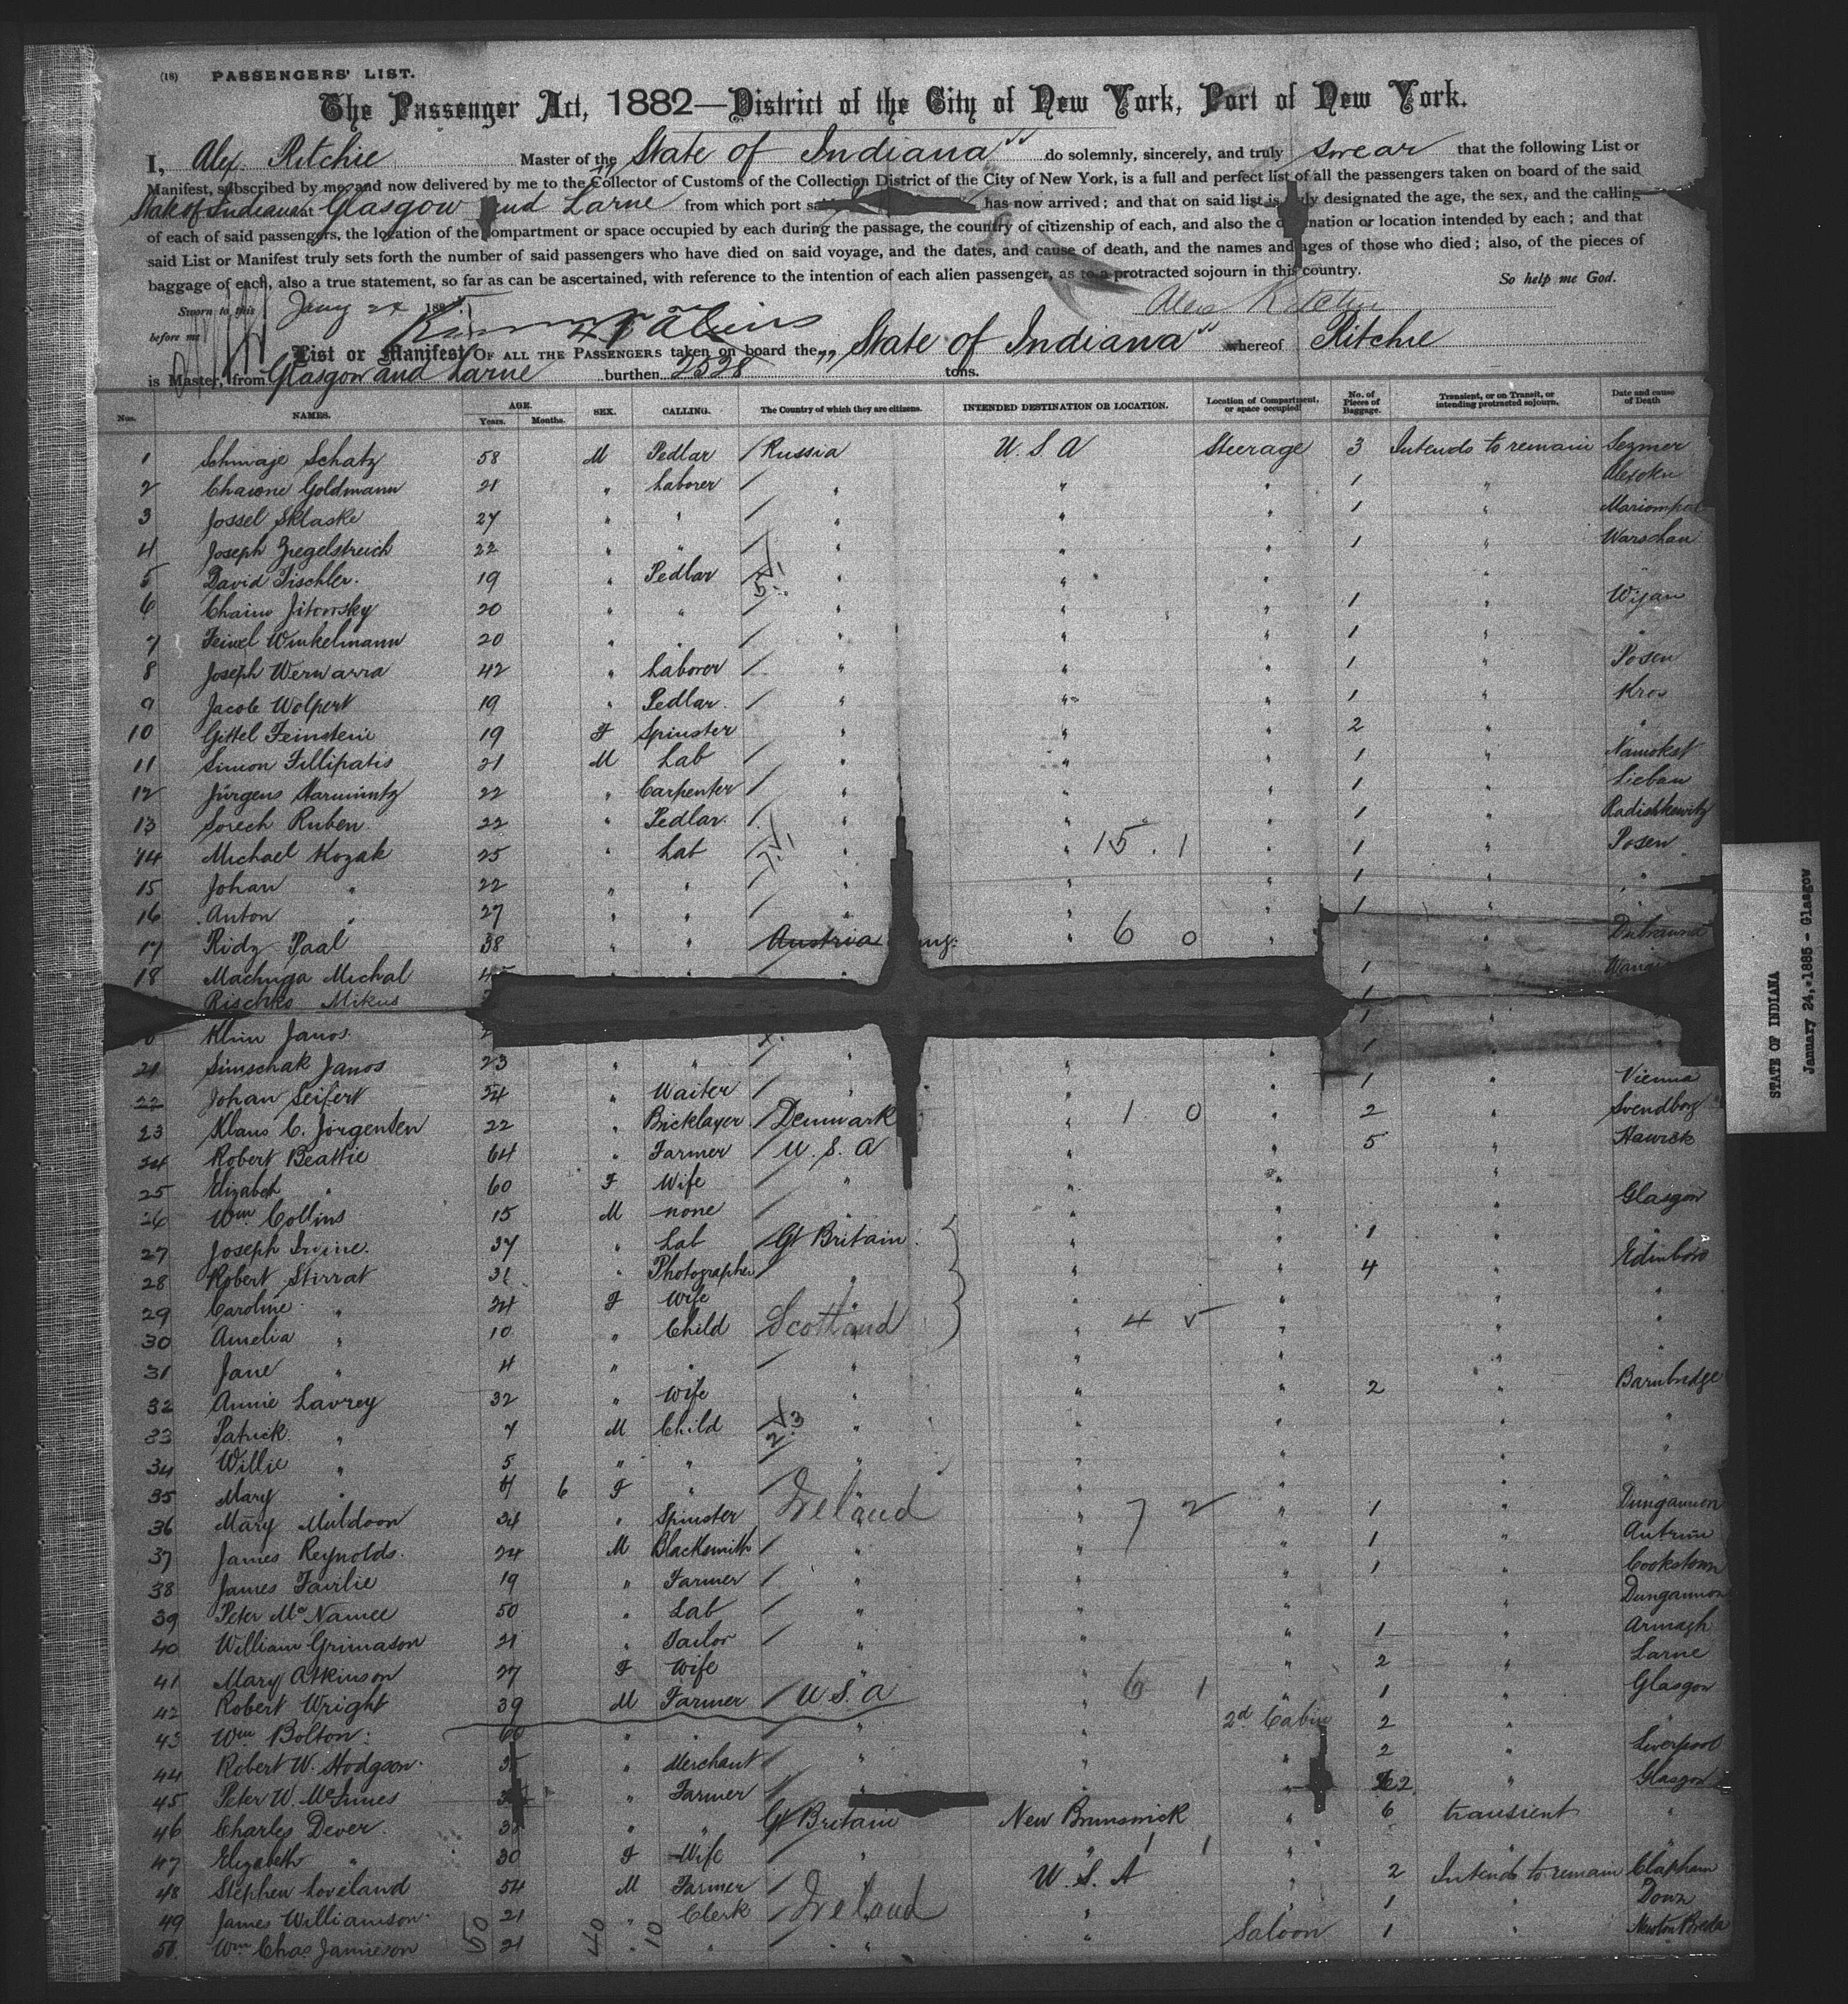 (18) PASSENGERS' LIST.
The Passenger Act, 1882—District of the City of New York, Port of New York.
I, Alex. Ritchie Master of the State of Indiana" do solemnly, sincerely, and truly swear that the following List or
Manifest, subscribed by me, and now delivered by me to the Collector of Customs of the Collection District of the City of New York, is a full and perfect list of all the passengers taken on board of the said
State of Indiana Glasgow and Larne from which port has now arrived; and that on said list is designated the age, the sex, and the calling
of each of said passengers, the location of the compartment or space occupied by each during the passage, the country of citizenship of each, and also the destination or location intended by each; and that
said List or Manifest truly sets forth the number of said passengers who have died on said voyage, and the dates, and cause of death, and the names and ages of those who died; also, of the pieces of
baggage of each, also a true statement, so far as can be ascertained, with reference to the intention of each alien passenger, as to a protracted sojourn in this country. So help me God.
Sworn to this Jany 24 1885 Alex Ritchie
before me
List or Manifest OF ALL THE PASSENGERS taken on board the "State of Indiana" whereof Ritchie
is Master, from Glasgow and Larne burthen 2528 tons.
Nos. NAMES. AGE. Years. Months. SEX. CALLING. The Country of which they are citizens. INTENDED DESTINATION OR LOCATION. Location of Compartment, or space occupied. No. of Pieces of Baggage. Transient, or on Transit, or intending protracted sojourn. Date and cause of Death
1 Schmaje Schatz 58 M Pedlar Russia U.S.A Steerage 3 Intends to remain Sezmer
2 Chawne Goldmann 21 " Laborer " " " 1 "
3 Jossel Sklaske 27 " " " " " 1 " Mariompol
4 Joseph Ziegelstreich 22 " " " " " 1 " Warschau
5 David Fischler. 19 " Pedlar " " " " "
6 Chaim Jitowsky 20 " " " " " 1 " Wijan
7 Feiwel Winkelmann 20 " " " " " 1 " "
8 Joseph Werwarra 42 " Laborer " " " 1 " Posen
9 Jacob Wolpert 19 " Pedlar. " " " 1 " Kros
10 Gittel Feinstein 19 F Spinster " " " 2 " "
11 Simon Fillipatis 21 M Lab " " " 1 " Namokst
12 Jürgens Harmuntz 22 " Carpenter " " " 1 " Liebau
13 Sorech Ruben. 22 " Pedlar. " " " 1 " Radishkewitz
14 Michael Kozak 25 " Lab " " 15. 1 " 1 " Posen
15 Johan " 22 " " " " " 1 " "
16 Anton " 27 " " " " " 1 " "
17 Ridz Paal 38 " " Austria " 6 0 " "
18 Machuga Michal 1 "
Rischko Mikus 1
Klim Janos. 1 "
21 Simschak Janos 23 " " " " " 1 " "
22 Johan Seifert 24 " Waiter " " " 1 " Vienna
23 Klaus C. Jorgensen 22 " Bricklayer Denmark " 1 0 " 2 " Svendborg
24 Robert Beattie 64 " Farmer U.S.A " " 5 " Hawick
25 Elizabeth " 60 F Wife " " " "
26 Wm Collins 15 M none " " " " Glasgow
27 Joseph Irvine. 37 " Lab Gt Britain. " " 1 " "
28 Robert Stirrat 31 " Photographer " " " 4 " Edinboro
29 Caroline " 24 F Wife " " " " "
30 Amelia " 10 " Child Scotland " 4 5 " " "
31 Jane " 4 " " " " " " "
32 Annie Lavrey 32 " Wife " " " 2 " Barnbridge
33 Patrick " 7 M Child " " " " "
34 Willie " 5 " " " " " " "
35 Mary " 4 6 F " " " " " "
36 Mary Muldoon 24 " Spinster Ireland " 7 2 " 1 " Dungannon
37 James Reynolds. 24 M Blacksmith " " " 1 " Antrim
38 James Fairlie 19 " Farmer " " " 1 " Cookstown
39 Peter McNamee 50 " Lab " " " " Dungannon
40 William Grimason 21 " Tailor " " " 1 " Armagh
41 Mary Atkinson 27 F Wife " " " 2 " Larne
42 Robert Wright 39 M Farmer U.S.A " 6 1 " 1 " Glasgow
43 Wm Bolton 60 " " " " 2d Cabin 2 " "
44 Robert W. Hodgson. " Merchant " " " 2 " Liverpool
45 Peter W. McInnes " Farmer " " " 2 " Glasgow
46 Charles Dever. " " Gt Britain New Brunswick " 6 transient "
47 Elizabeth " 30 F Wife " " 1 1 " " "
48 Stephen Loveland 54 M Farmer " U.S.A " 2 Intends to remain Clapham
49 James Williamson 21 " Clerk Ireland " " 1 " Down
50. Wm Chas Jamieson 21 " " " " Saloon 1 " Newton Breda
50 40 10
STATE OF INDIANA
January 24, 1885 - Glasgow